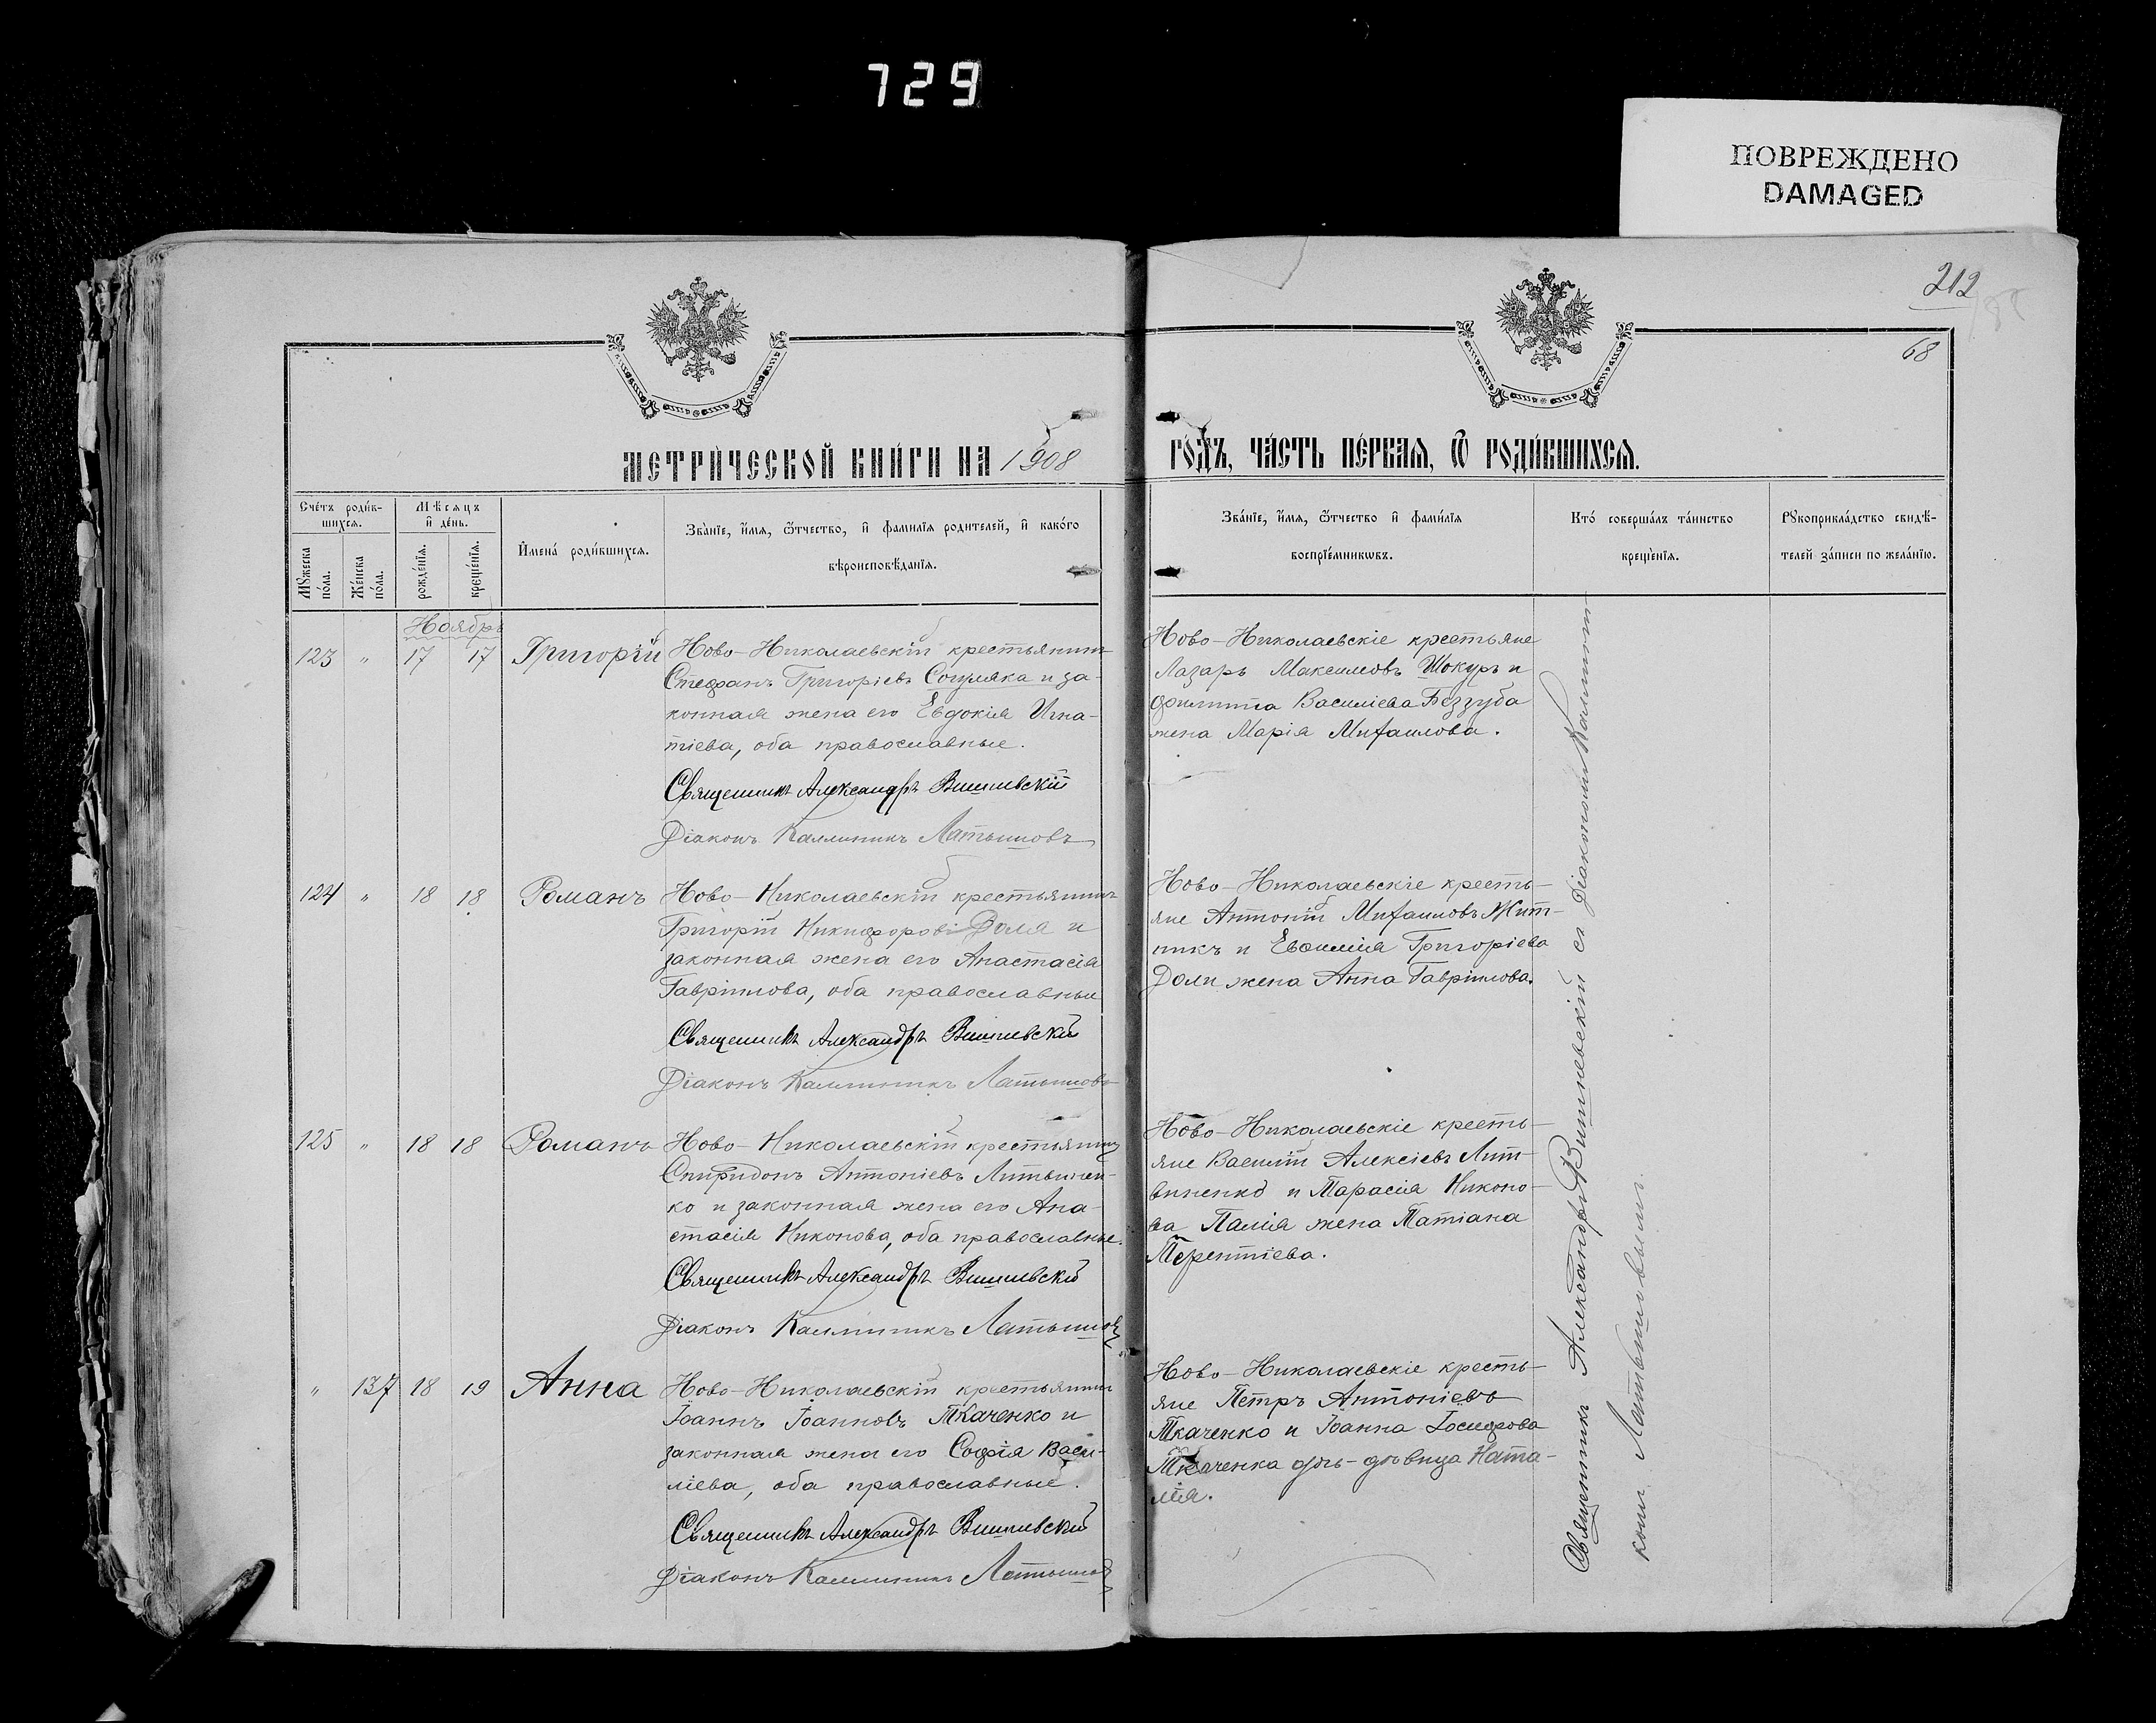 729
ПОВРЕЖДЕНО
DAMAGED
212
68
МЕТРИ́ЧЕСКОЙ КНИ́ГИ НА 1908
ГО́ДЪ, ЧА́СТЬ ПЕ́РВАЯ, Ѿ РОДИ́ВШИХСЯ.
Сче́тъ роди́в-
шихся.
Мꙋ́жеска по́ла.
Же́нска по́ла.
Мѣ́сяцъ
и҆ де́нь.
рожде́нїя.
креще́нїя.
И҆мена̀ роди́вшихся.
Зва́нїе, и҆́мя, ѻ҆́тчество, и҆ фамилїя родителей, и҆ како́го
вѣроисповѣ́данїя.
Зва́нїе, и҆́мя, ѻ҆́тчество и҆ фами́лїя
воспрїе́мникѡвъ.
Кто́ соверша́лъ та́инство
креще́нїя.
Рꙋкоприкла́дство свидѣ́-
телей за́писи по жела́нїю.
Ноябрь
123 " 17 17 Григорій
Ново-Николаевскій крестьянинъ
Стефанъ Григоріевъ Согуляка и за-
конная жена его Евдокія Игна-
тіева, оба православные.
Священникъ Александръ Вишневскій
Діаконъ Каллиникъ Латышовъ
Ново-Николаевскіе крестьяне
Лазарь Максимовъ Шокуръ и
Филиппа Василіева Беззуба
жена Марія Михаилова.
124 " 18 18 Романъ
Ново-Николаевскій крестьянинъ
Григорій Никифоровъ Доля и
законная жена его Анастасія
Гавріилова, оба православные
Священникъ Александръ Вишневскій
Діаконъ Каллиникъ Латышовъ
Ново-Николаевскіе кресть-
яне Антоній Михаиловъ Жит-
никъ и Евѳимія Григоріева
Доли жена Анна Гавріилова.
125 " 18 18 Романъ
Ново-Николаевскій крестьянинъ
Спиридонъ Антоніевъ Литвинен-
ко и законная жена его Ана-
стасія Никонова, оба православные.
Священникъ Александръ Вишневскій
Діаконъ Каллиникъ Латышовъ
Ново-Николаевскіе кресть-
яне Василій Алексіевъ Лит-
виненко и Тарасія Никоно-
ва Палія жена Татіана
Терентіева.
" 137 18 19 Анна
Ново-Николаевскій крестьянинъ
Іоаннъ Іоанновъ Ткаченко и
законная жена его Софія Васи-
ліева, оба православные.
Священникъ Александръ Вишневскій
Діаконъ Каллиникъ Латышовъ
Ново-Николаевскіе кресть-
яне Петръ Антоніевъ
Ткаченко и Іоанна Іосифова
Ткаченка дочь-дѣвица Ната-
лія.
Священникъ Александръ Вишневскій съ Діакономъ Каллини-
комъ Латышовымъ.